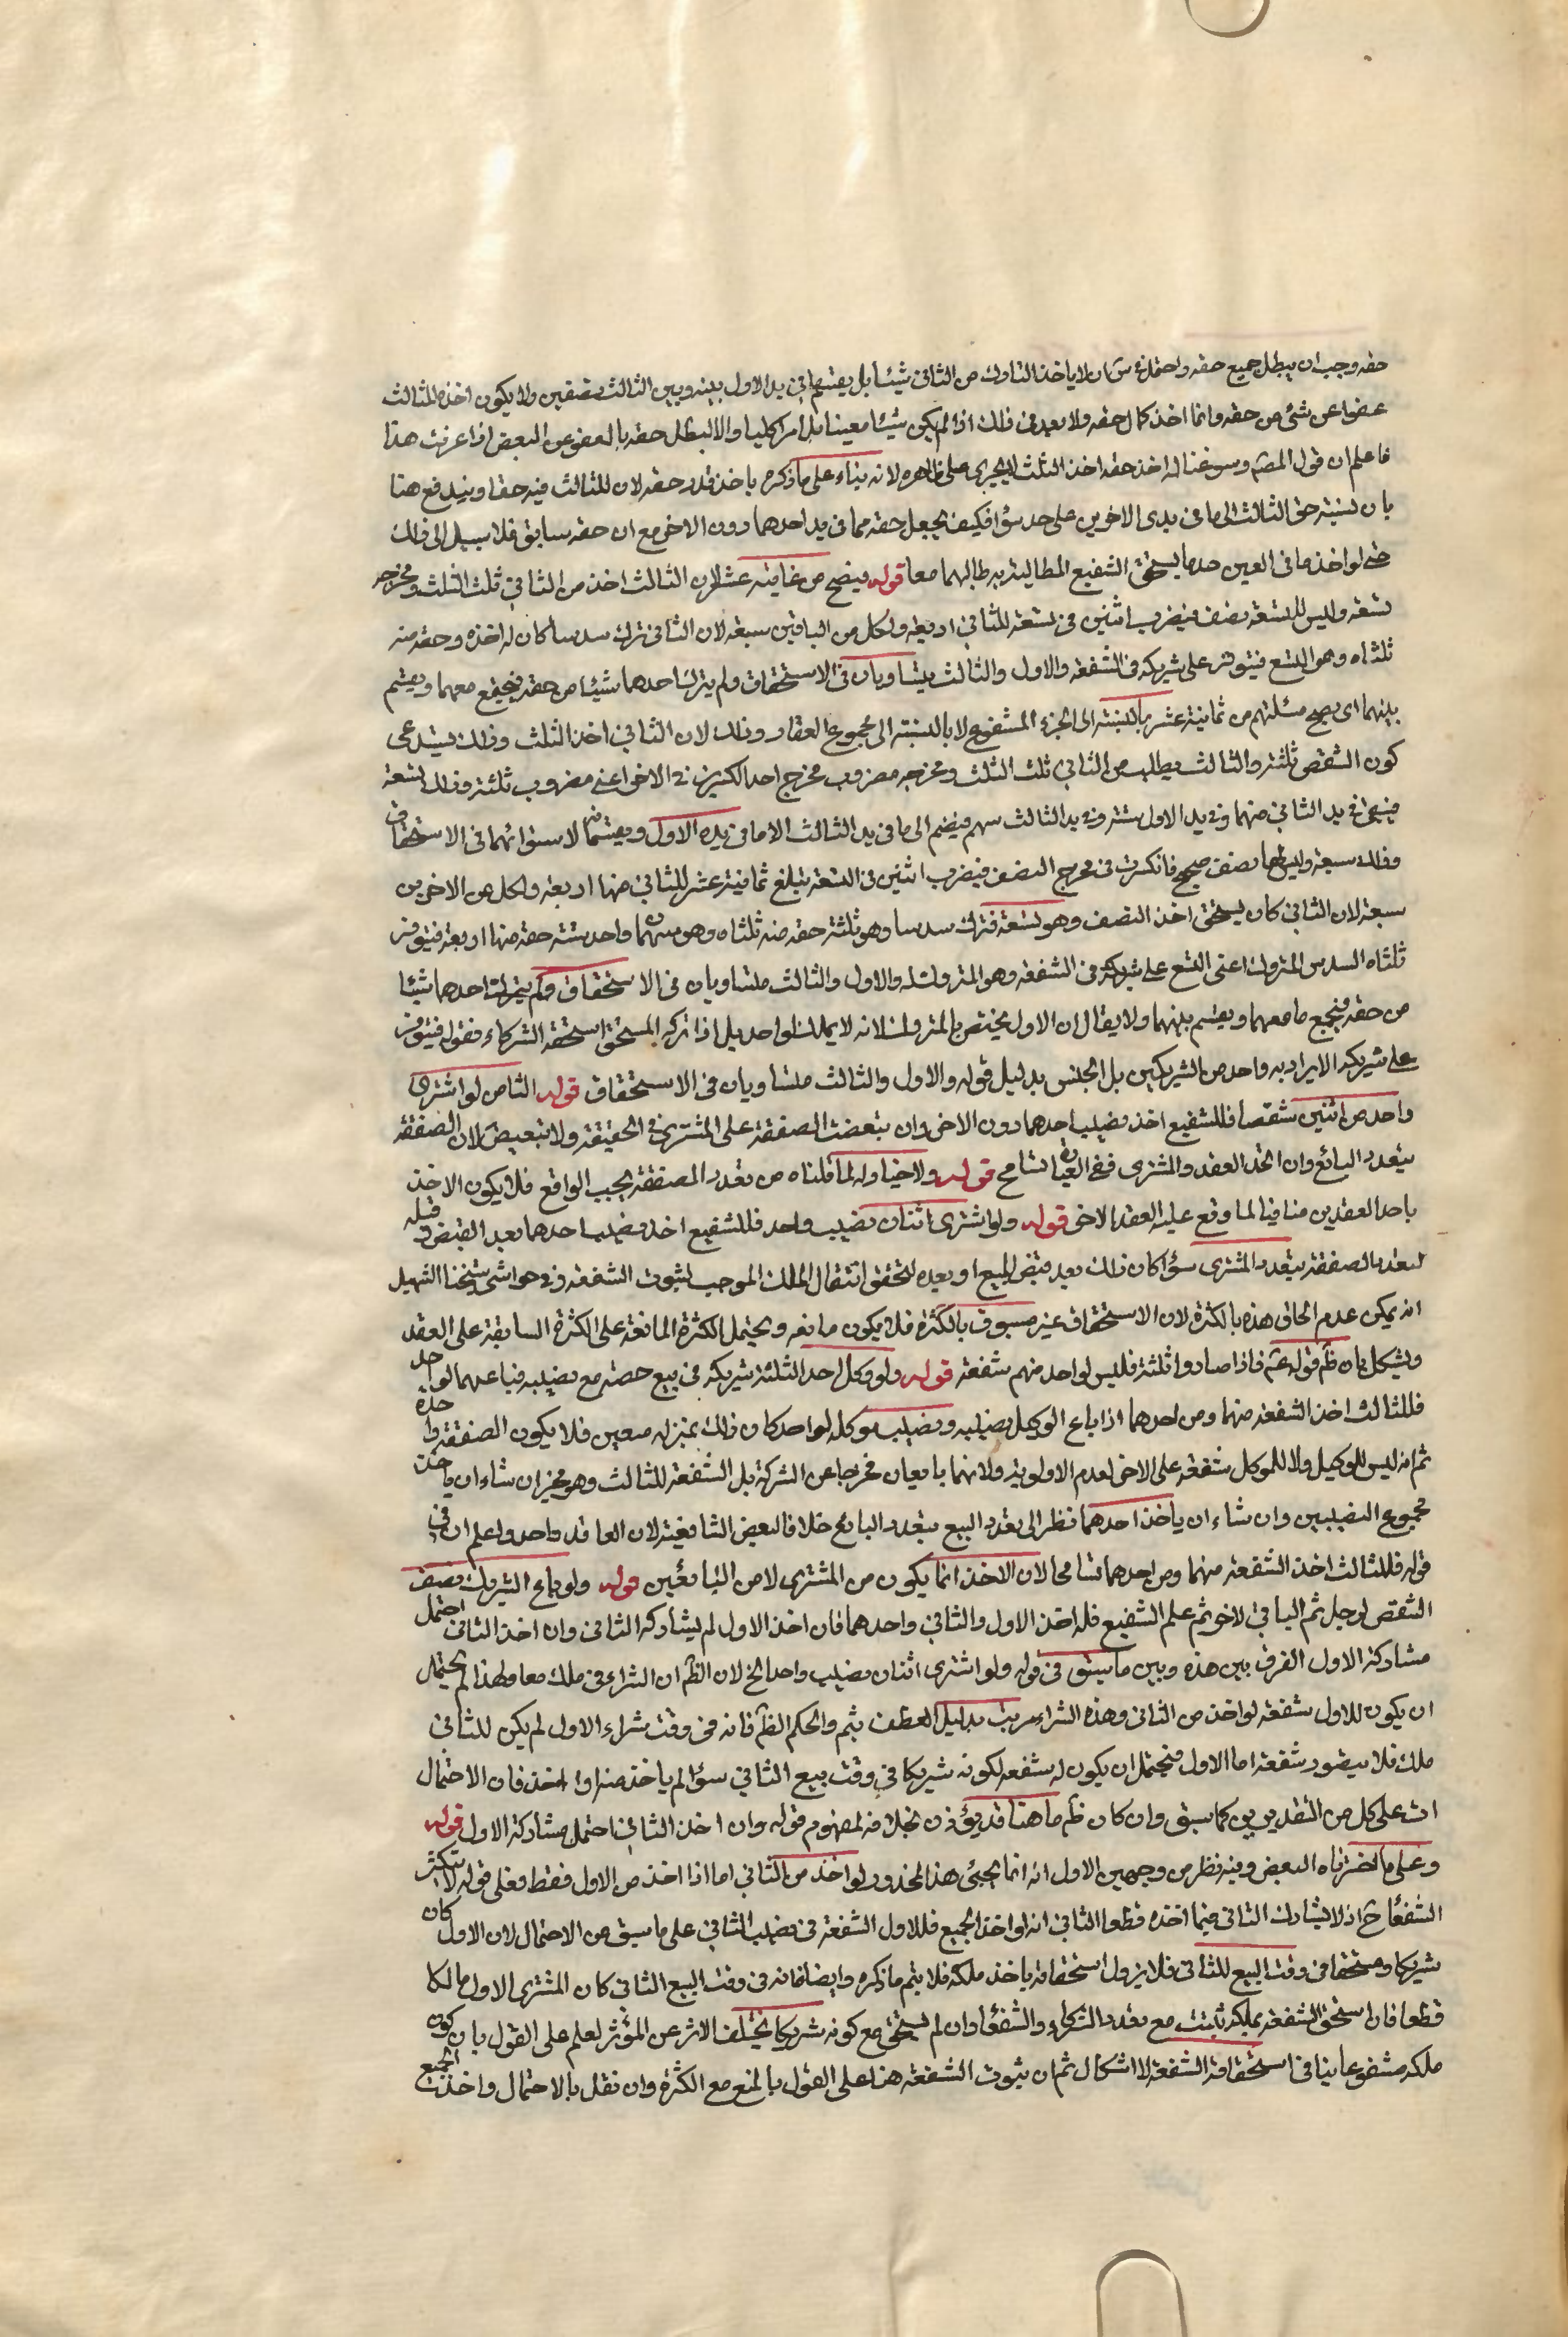 حقه وجب ان يبطل جميع حقه واحتمل ان لا ياخذ الثالث من الثاني شيئا بل يقتسم ما في يد الاول بينه وبين الثالث نصفين ولا يكون اخذه الثالث
عفوا عن شئ من حقه وانما اخذ كمال حقه ولا بعد في ذلك اذا لم يكن شيئا معينا بل امرا كليا والا لبطل حقه بالعفو عن البعض اذا عرفت هذا
فاعلم ان قول المصنف وسوغنا له اخذ حقه اخذ الثلث لا يجري على ظاهره لانه بناء على ما ذكره ياخذ قدر حقه لان للثالث فيه حقا ويندفع هنا
بان نسبة حق الثالث الى ما في يدي الاخرين على حد سواء فكيف يجعل حقه مما في يد احدهما دون الاخر مع ان حقه سابق فلا سبيل الى ذلك
حتى لو اخذ ما في العين حدهما يستحق الشفيع المطالبة به طالبهما معا قوله فيصح من ثمانية عشر لان الثالث اخذ من الثاني ثلث الثلث ومخرجه
تسعة وليس للسبعة نصف فيضرب اثنين في تسعة للثاني اربعة ولكل من الباقين سبعة لان الثاني ترك سدسا كان له اخذه وحقه منه
ثلثاه وهو التسع فيتوفر على شريكه في الشفعة والاول والثالث يتساويان في الاستحقاق ولم يترك احدهما شيئا من حقه فيجمع معهما ويقسم
بينهما اى يصح مسئلتهم من ثمانية عشر بالنسبة الى الجزء المشفوع لا بالنسبة الى مجموع العقار وذلك لان الثاني اخذ الثلث وذلك يستدعى
كون الشقص ثلثة والثالث يطلب من الثاني ثلث الثلث ومخرجه مضروب مخرج احد الكسرين في الاخر اعني مضروب ثلثة وذلك تسعة
فيبقى في يد الثاني منهما وفي يد الاول ستة وفي يد الثالث سهم فيضم الى ما في يد الثالث الا ما في يده الاول ويقتسمانه لاستوائهما في الاستحقاق
وذلك سبعة وليس لهما نصف صحيح فانكسرت في مخرج النصف فيضرب اثنين في التسعة تبلغ ثمانية عشر للثاني منها اربعة ولكل من الاخرين
سبعة لان الثاني كان يستحق اخذ النصف وهو تسعة فترك سدسا وهو ثلثة حقه منه ثلثاه وهو سهمان واحد ستة حقه منها اربعة فيتوفر
ثلثاه السدس المتروك اعنى التسع على شريكه في الشفعة وهو المتروك له والاول والثالث متساويان في الاستحقاق ولم يترك احدهما شيئا
من حقه فيجمع ما معهما ويقسم بينهما ولا يقال ان الاول مختص بالمتروك لانه لا يملك لواحد بل اذا تركه المستحق استحقه الشركاء فقوله فيتوفر
على شريكه لا يراد به واحد من الشريكين بل الجنس بدليل قوله والاول والثالث متساويان في الاستحقاق قوله الثامن لو اشترى
واحد من اثنين شقصا فللشفيع اخذ نصيب احدهما دون الاخر وان تبعضت الصفقة على المشترى في الحقيقة ولا تبعيض لان الصفقة
يتعدد البائع وان اتحد العقد والمشترى ففي العبارة تسامح قوله ولا خيار له لما قلناه من تعدد الصفقة بحسب الواقع فلا يكون الاخذ
باحد العقدين منافيا لما وقع عليه العقد الاخر قوله ولو اشترى اثنان نصيب واحد فللشفيع اخذ نصيب احدهما بعد القبض وقبله
لتعدد الصفقة بتعدد المشترى سواء كان ذلك بعد قبض المبيع او بعده لتحقق انتقال الملك الموجب لثبوت الشفعة وفي حواشى شيخنا الشهيد
انه يمكن عدم الحاق هذه بالكثرة لان الاستحقاق غير مسبوق بالكثرة فلا يكون مانعه ويحتمل الكثرة المانعة على الكثرة السابقة على العقد
ويشكل بان ظم قوله عم فاذا صاروا ثلثة فليس لواحد منهم شفعة قوله ولو وكل احد الثلثة شريكه في بيع حصته مع نصيبه فباعهما لواحد
فللثالث اخذ الشفعة منهما ومن احدهما اذا باع الوكيل نصيبه ونصيب موكله لواحد كان ذلك بمنزلة صعين فلا يكون الصفقة واحدة
ثم انه ليس للوكيل ولا للموكل شفعة على الاخر لعدم الاولوية ولانهما بايعان مخرجا عن الشركة بل الشفعة للثالث وهو مخير ان شاء ان ياخذ
مجموع النصيبين وان شاء ان ياخذ احدهما نظرا الى تعدد البيع بتعدد البائع خلافا لبعض الشافعية لان العاقد واحد واعلم ان في
قوله فللثالث اخذ الشفعة منهما ومن احدهما تسامحا لان الاخذ انما يكون من المشترى لا من البائعين قوله ولو باع الشريك نصف
الشقص لرجل ثم الباقي لاخر ثم علم الشفيع فله اخذ الاول والثاني واحدهما فان اخذ الاول لم يشاركه الثاني وان اخذ الثاني احتمل
مشاركة الاول الفرق بين هذه وبين ما سبق في قوله ولو اشترى اثنان نصيب واحد الخ لان الظم ان الشراء في ملك معا ولهذا لم يحتمل
ان يكون للاول شفعة لو اخذ من الثاني وهذه الشراء مرتب بدليل العطف بثم والحكم الظم فانه في وقت شراء الاول لم يكن للثاني
ملك فلا يتصور شفعة اما الاول فيحتمل ان يكون له شفعه لكونه شريكا في وقت بيع الثاني سواء لم ياخذ منه او اخذ فان الاحتمال
ات على كل من التقديرين كما سبق وان كان ظم ما هنا قد يؤذن بخلافه لمفهوم قوله وان اخذ الثاني احتمل مشاركة الاول قوله
وعلى ما اخترناه البعض وفيه نظر من وجهين الاول انه انما يجئ هذا المحذور لو اخذ من الثاني اما اذا اخذ من الاول فقط فعلى قوله لا تكثر
الشفعاء ح اذ لا يشارك الثاني فيما اخذه قطعا الثاني انه لو اخذ الجميع فللاول الشفعة في نصيب الثاني على ما سبق من الاحتمال لان الاول كان
شريكا ومستحقا في وقت البيع للثاني فلا يزول استحقاقه ياخذ ملكه فلا يتم ما ذكره وايضا فانه في وقت البيع الثاني كان المشترى الاول مالكا
قطعا فان استحق الشفعة بملكه ثبتت مع تعدد الشركاء والشفعاء وان لم يستحق مع كونه شريكا تخلف الاثر عن المؤثر لعلم على القول بان كون
ملكه مشفوعا ينافي استحقاقه الشفعة لا اشكال ثم ان ثبوت الشفعة هنا على القول بالمنع مع الكثرة وان نقل بالاحتمال واخذت الجميع